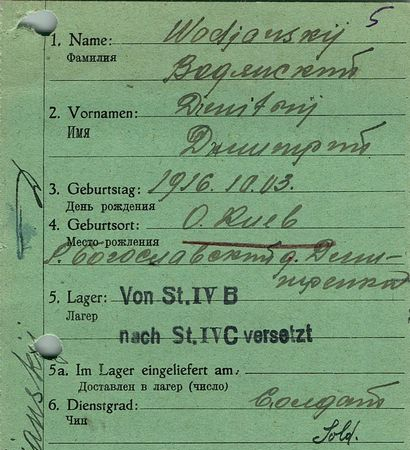 5
1. Name: Wodjanskij
Фамилия Водянский
2. Vornamen: Dmitrij
Имя Дмитрий
3. Geburtstag: 1916.10.03.
День рождения
4. Geburtsort: О. Киев
Место рождения
Р. Богославский д. Деми-
тренка
5. Lager: Von St. IV B
Лагер
nach St. IV C versetzt
5a. Im Lager eingeliefert am
Доставлен в лагер (число)
6. Dienstgrad: Солдат
Чин
Sold.